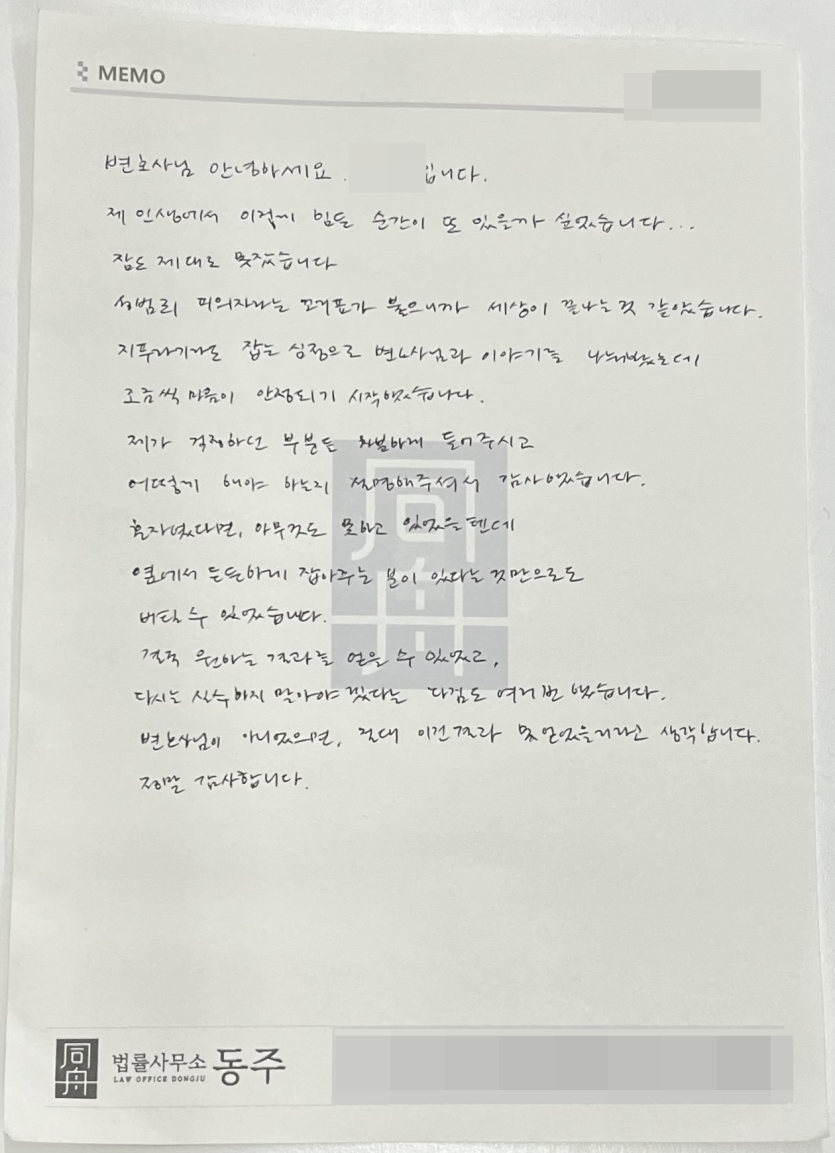 MEMO
변호사님 안녕하세요. 입니다.
제 인생에서 이렇게 힘든 순간이 또 있을까 싶었습니다...
잠도 제대로 못잤습니다
성범죄 피의자라는 꼬리표가 붙으니까 세상이 끝나는 것 같았습니다.
지푸라기라도 잡는 심정으로 변호사님과 이야기를 나눠봤는데
조금씩 마음이 안정되기 시작했습니다.
제가 걱정하던 부분도 차분하게 들어주시고
어떻게 해야 하는지 설명해주셔서 감사했습니다.
혼자였다면, 아무것도 못하고 있었을텐데
옆에서 든든하게 잡아주는 분이 있다는 것만으로도
버틸 수 있었습니다.
결국 원하는 결과를 얻을 수 있었고,
다시는 실수하지 말아야 겠다는 다짐도 여러번 했습니다.
변호사님이 아니었으면, 절대 이런결과 못 얻었을거라고 생각합니다.
정말 감사합니다.
同舟
同舟 법률사무소 동주
LAW OFFICE DONGJU